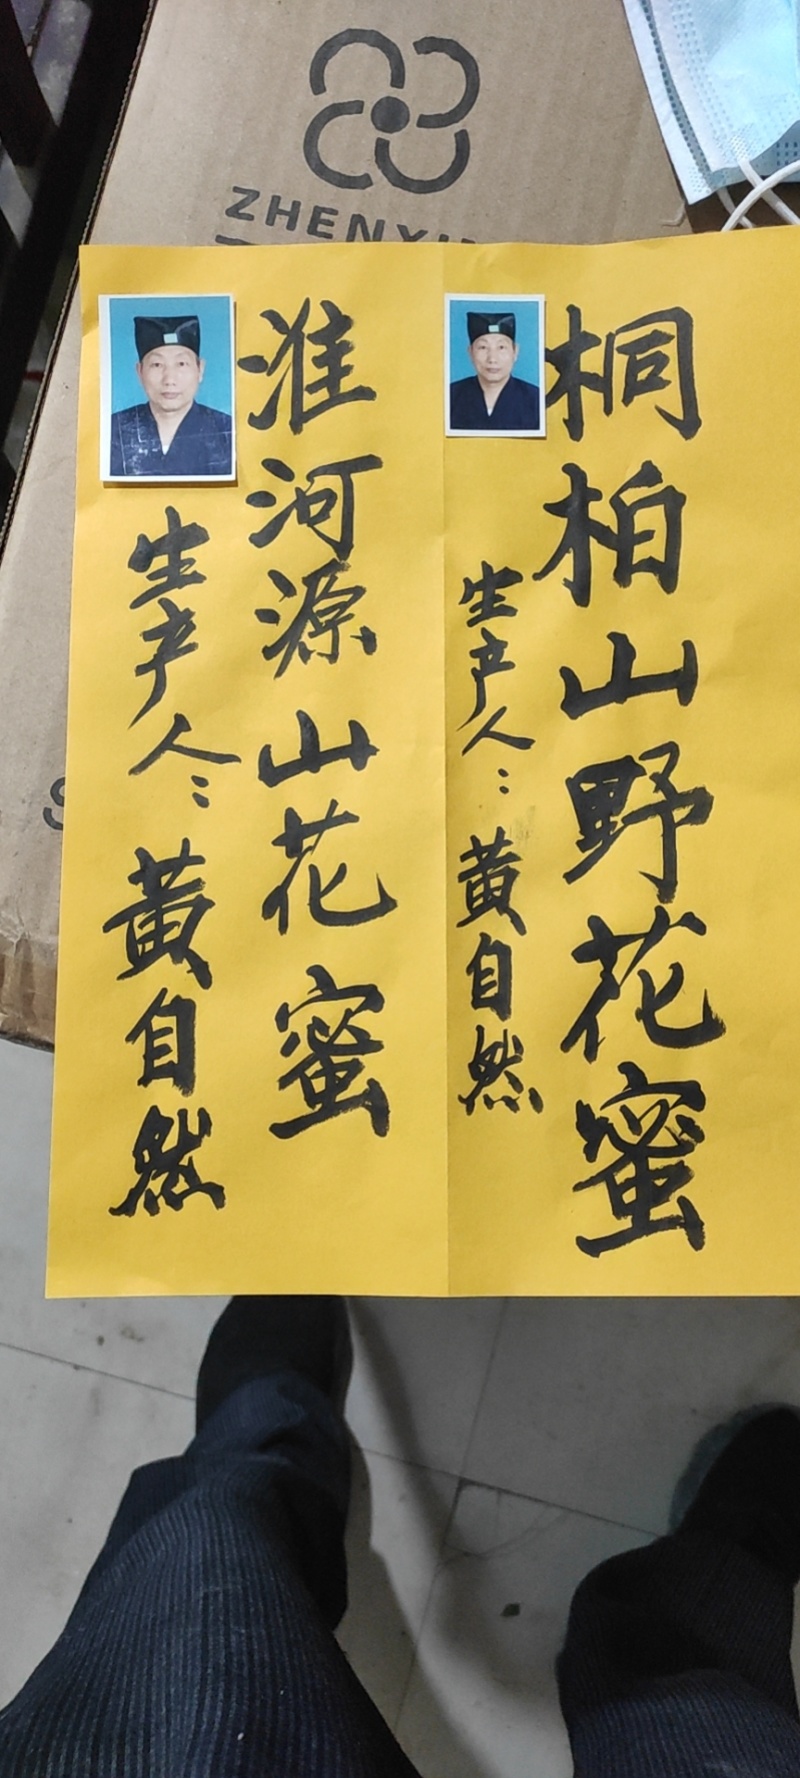 ZHENXIN
桐柏山野花蜜
生产人：黄自然
淮河源山花蜜
生产人：黄自然